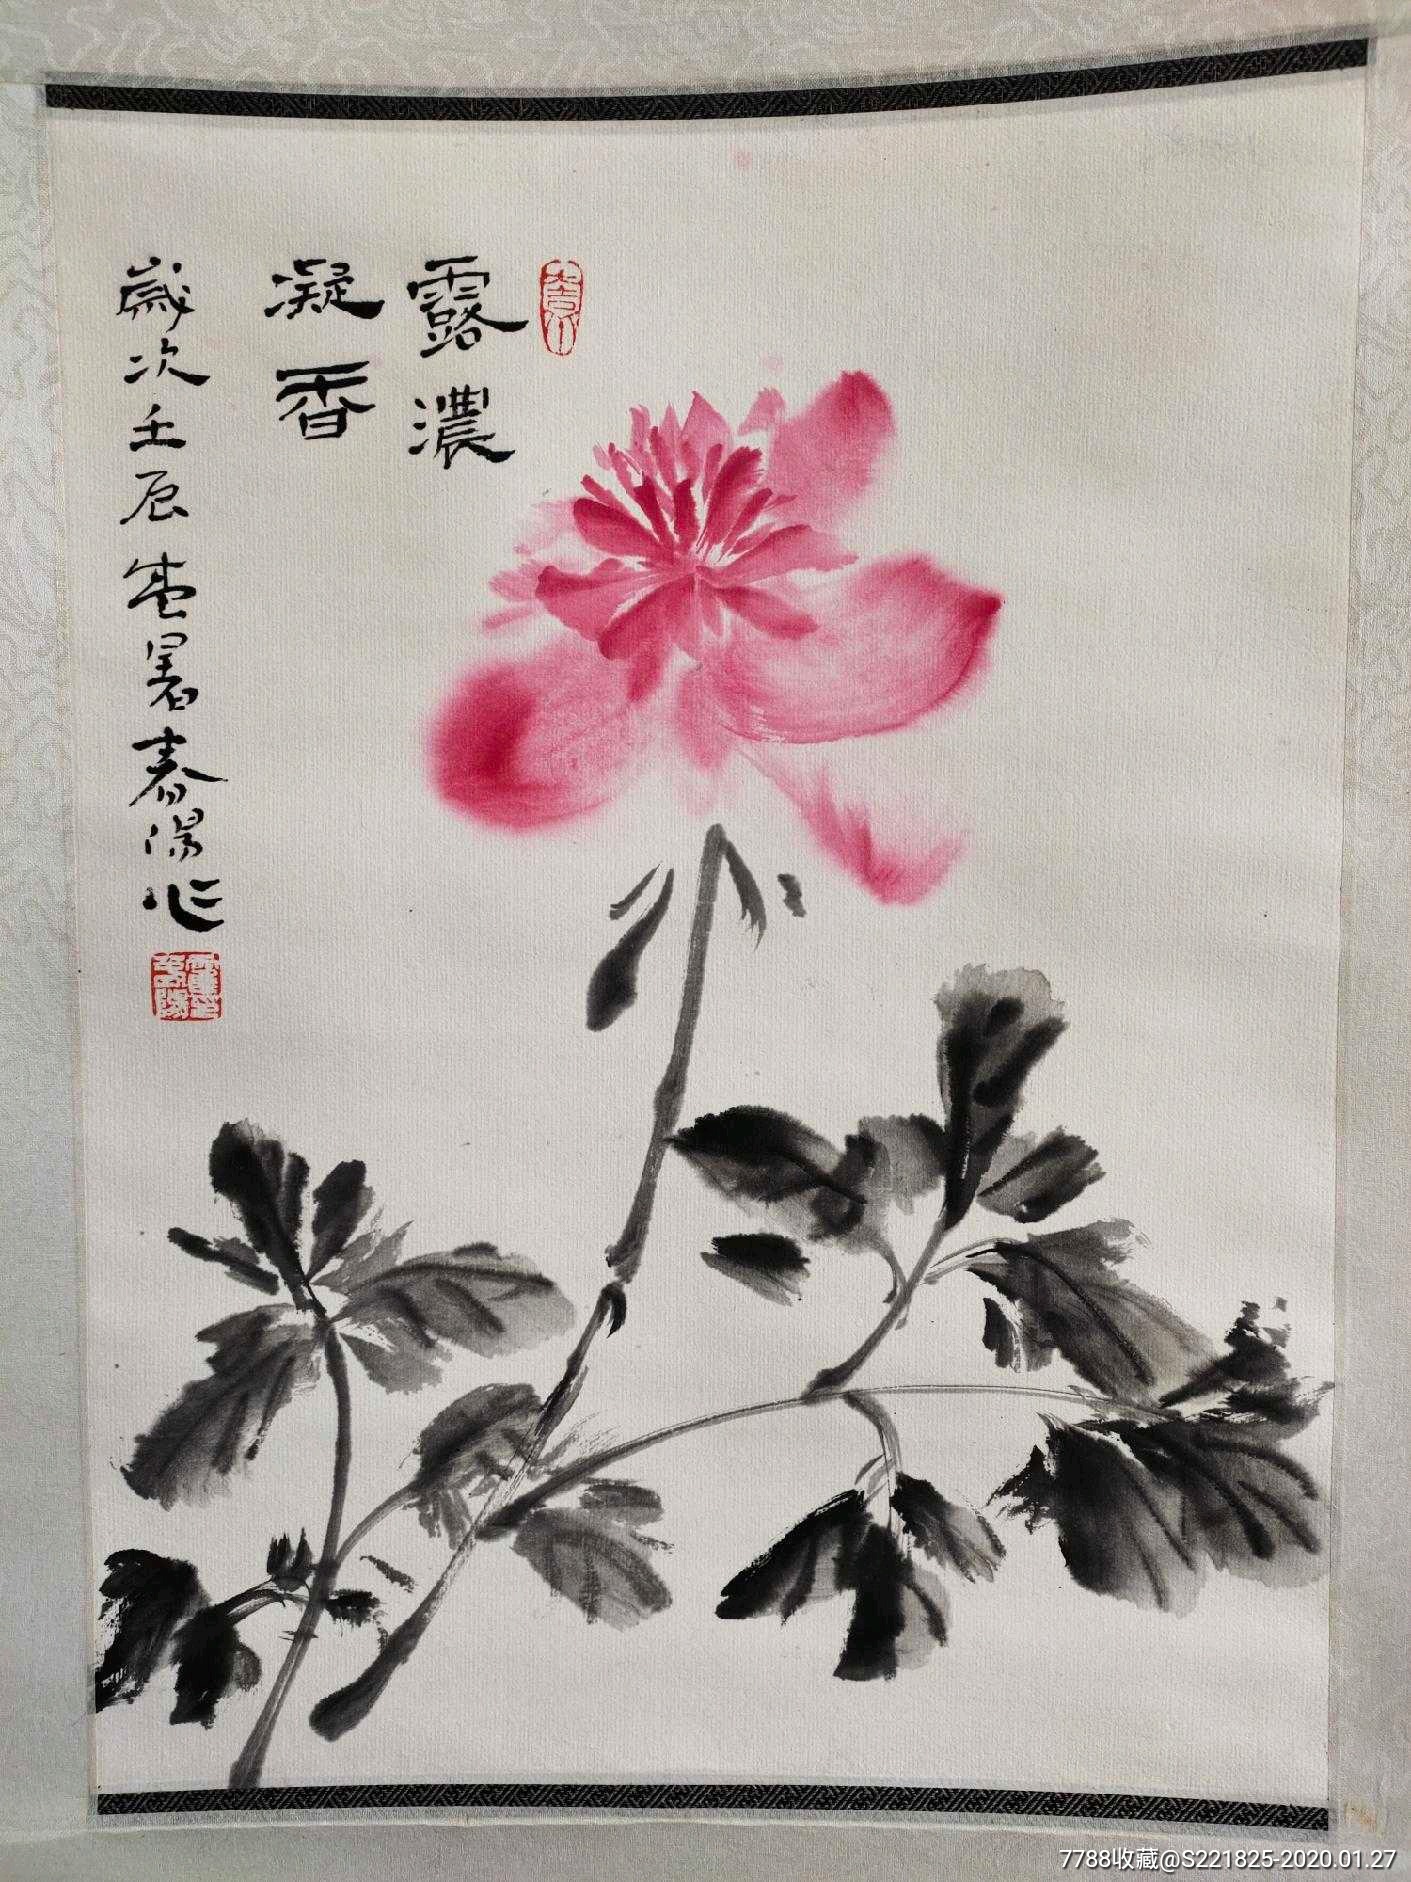 露濃
凝香
歲次壬辰盛暑春陽作
7788收藏@S221825-2020.01.27